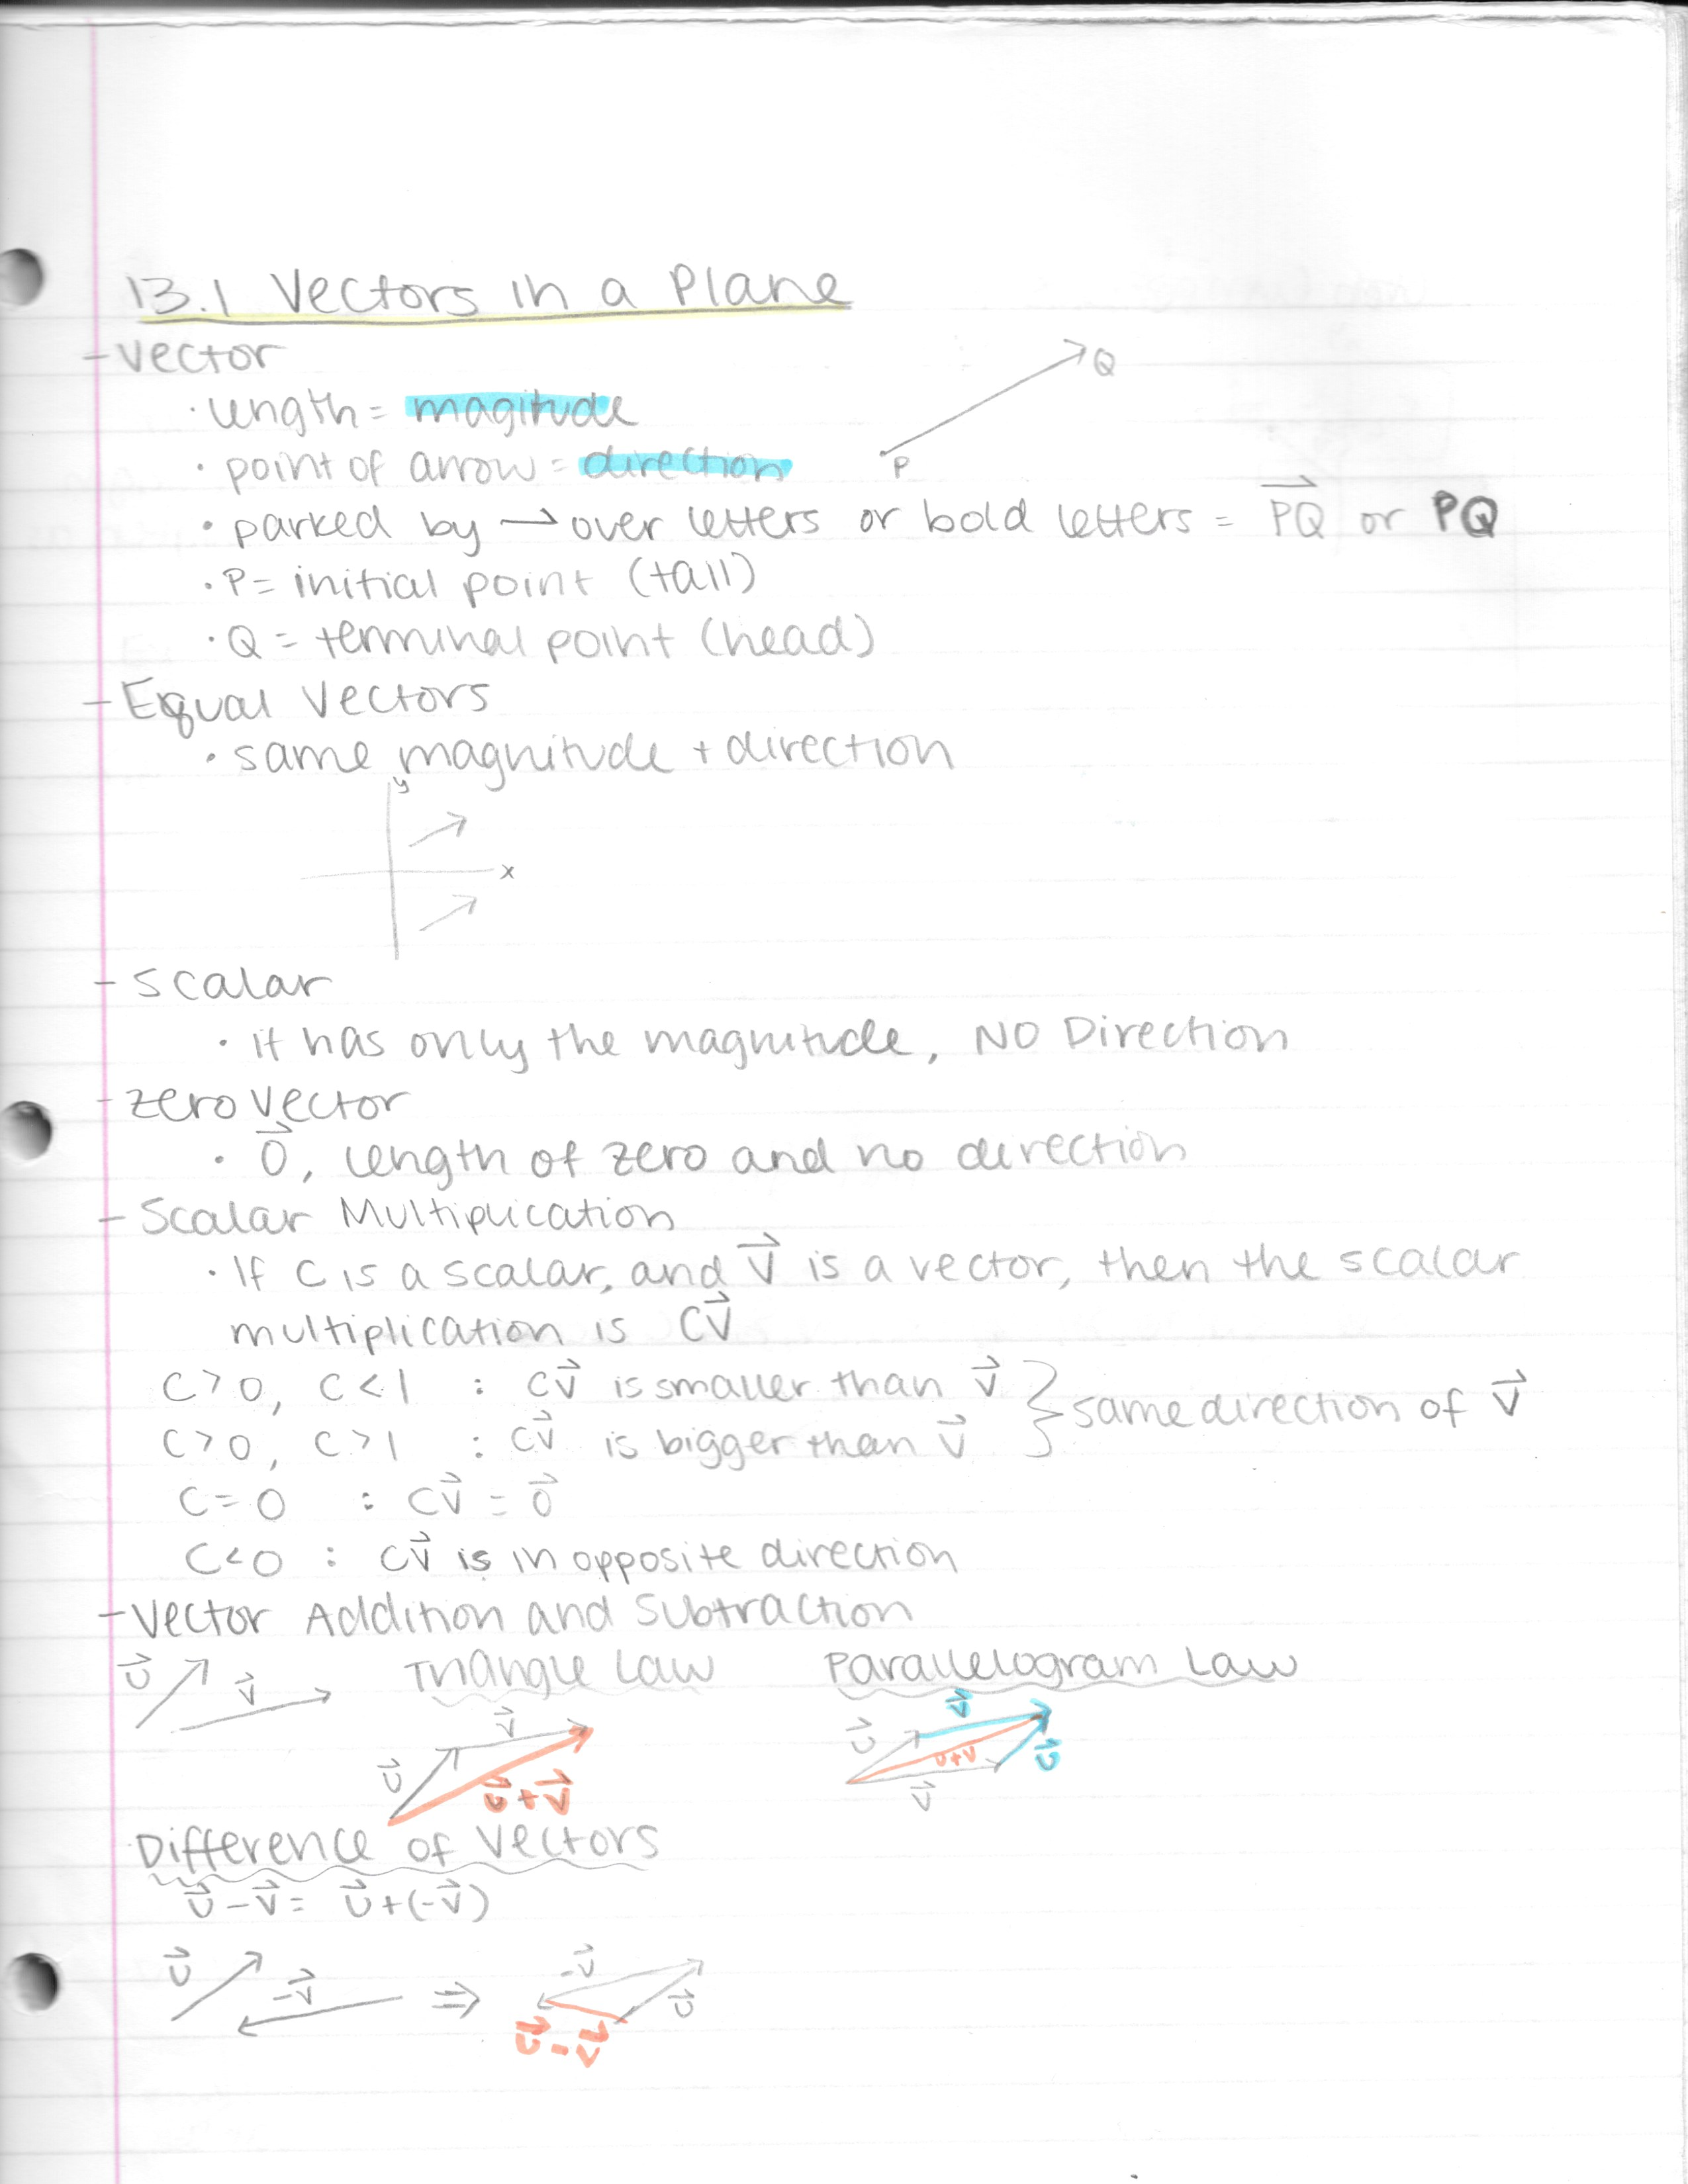 13.1 Vectors in a Plane
- Vector
· length = magitude
· point of arrow = direction
Q
P
· parked by → over letters or bold letters = P⃗Q⃗ or PQ
· P = initial point (tall)
· Q = terminal point (head)
- Equal Vectors
· same magnitude + direction
y
x
- Scalar
· it has only the magnitude, NO Direction
- zero vector
· 0⃗, length of zero and no direction
- Scalar Multiplication
· If c is a scalar, and v⃗ is a vector, then the scalar
multiplication is cv⃗
c > 0, c < 1 : cv⃗ is smaller than v⃗ } same direction of v⃗
c > 0, c > 1 : cv⃗ is bigger than v⃗
c = 0 : cv⃗ = 0⃗
c < 0 : cv⃗ is in opposite direction
- Vector Addition and Subtraction
u⃗ v⃗ Triangle Law Parallelogram Law
u⃗ v⃗ u⃗+v⃗
u⃗ v⃗ u+v v⃗ u⃗
Difference of Vectors
u⃗ - v⃗ = u⃗ + (-v⃗)
u⃗ -v⃗ ⇒ -v⃗ u⃗
u⃗ - v⃗